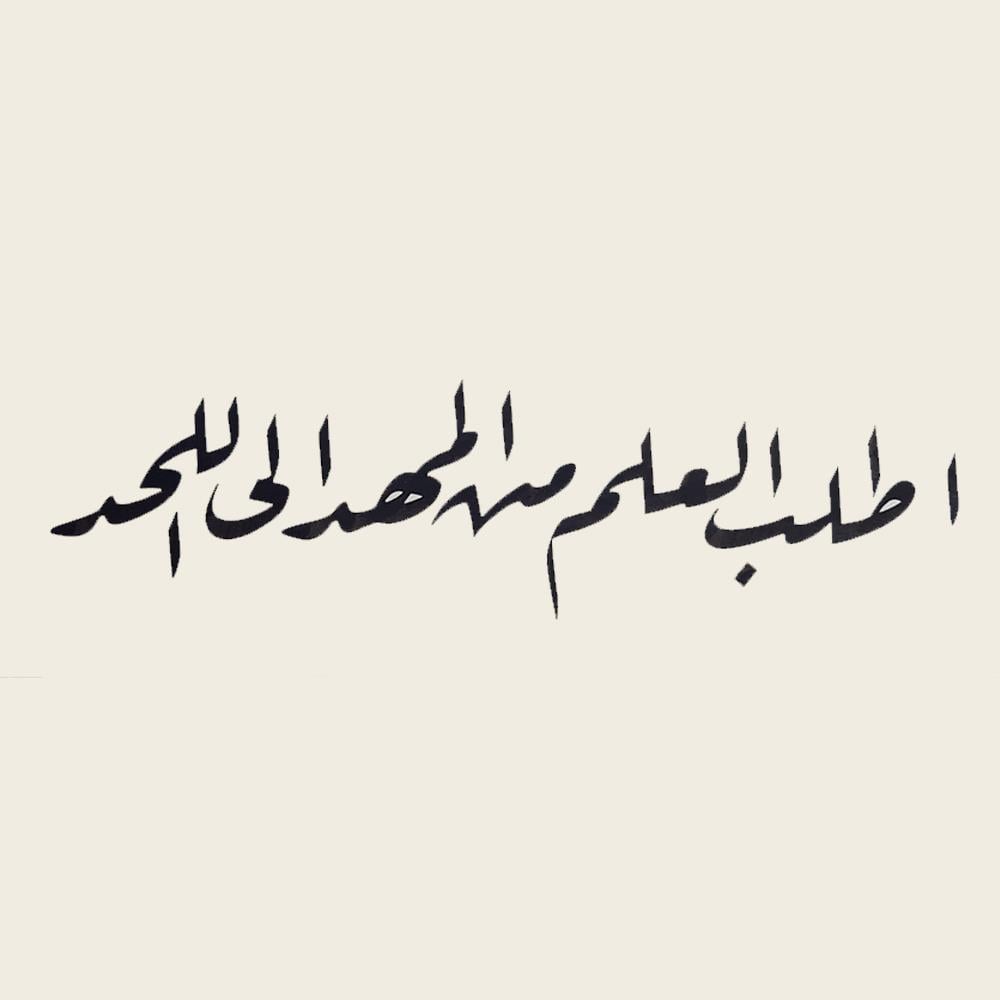 اطلب العلم من المهد الى اللحد